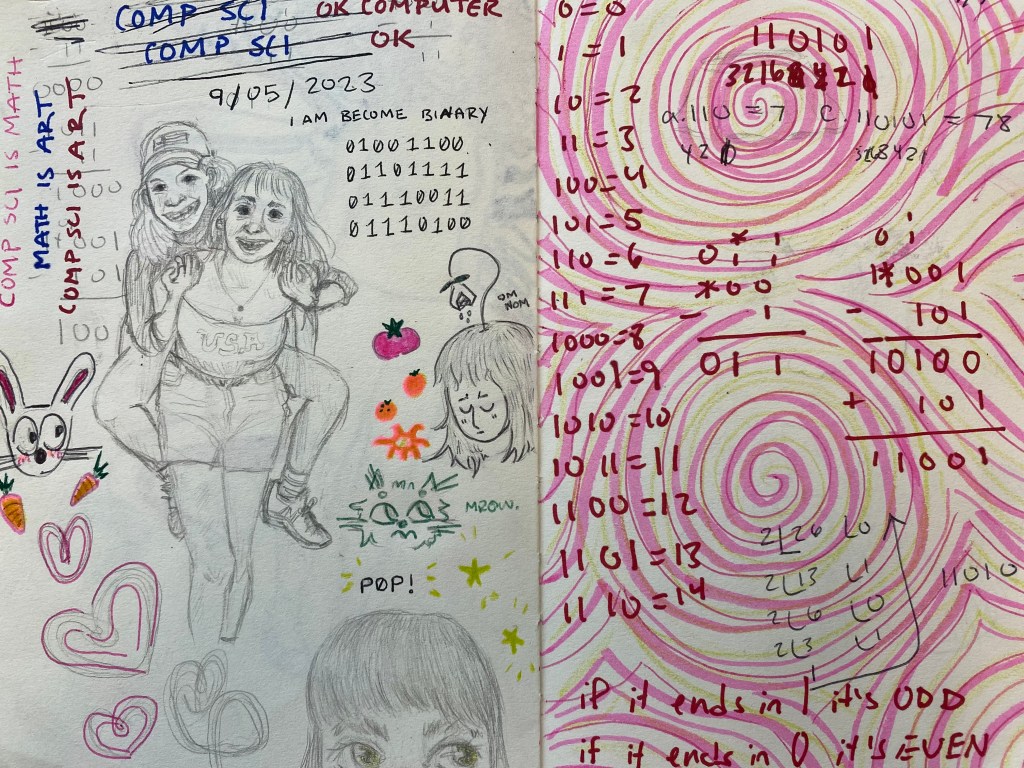 COMP SCI OK COMPUTER
COMP SCI OK
9/05/2023
I AM BECOME BINARY
01001100
01101111
01110011
01110100
COMP SCI IS MATH
MATH IS ART
COMP SCI IS ART
USA
OM
NOM
mr
MROW.
POP!
0=0
1=1
10=2
11=3
100=4
101=5
110=6
111=7
1000=8
1001=9
1010=10
1011=11
1100=12
1101=13
1110=14
110101
32168421
a.110=7 c.110101=78
421 328421
0*1
011
*00
- 1
011
01
1*001
- 101
10100
+ 101
11001
2 26 0
2 13 1
2 6 0
2 3 1
1
11010
if it ends in 1 it's ODD
if it ends in 0 it's EVEN